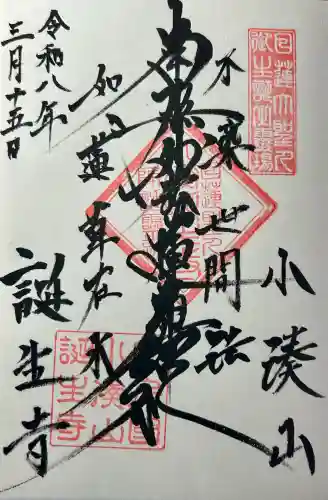 小湊山
不染世間法
南無妙法蓮華経
如蓮華在水
誕生寺
令和八年
三月十五日
日蓮大聖人
御生誕霊場